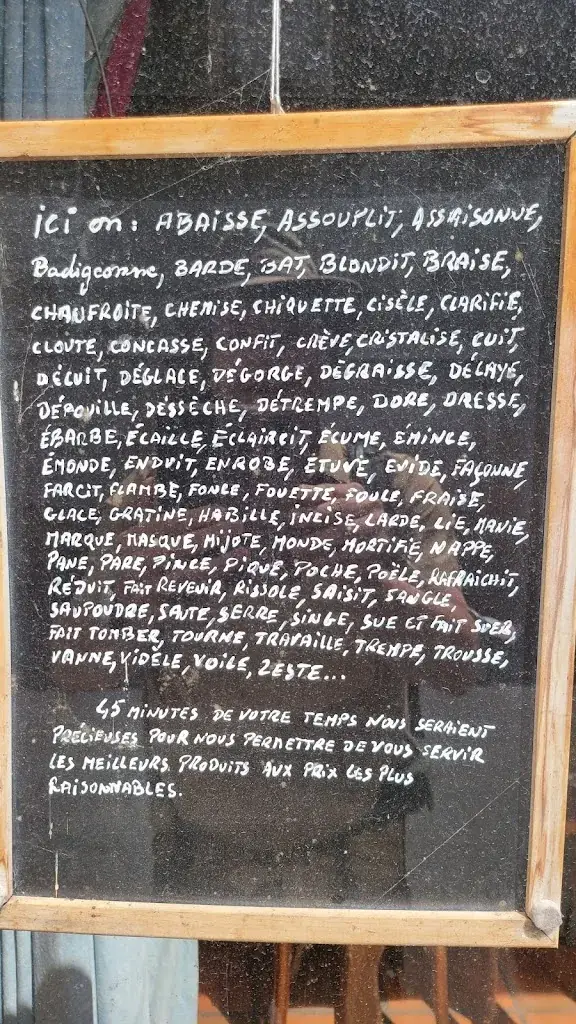 ici on: ABAISSE, ASSOUPLIT, ASSAISONNE,
Badigeonne, BARDE, BAT, BLONDIT, BRAISE,
CHAUFROITE, CHEMISE, CHIQUETTE, CISÈLE, CLARIFIE,
CLOUTE, CONCASSE, CONFIT, CRÈVE, CRISTALISE, CUIT,
DÉCUIT, DÉGLACE, DÉGORGE, DÉGRAISSE, DÉLAYE,
DÉPOUILLE, DÉSSÈCHE, DÉTREMPE, DORE, DRESSE,
ÉBARBE, ÉCAILLE, ÉCLAIRCIT, ÉCUME, ÉMINCE,
ÉMONDE, ENDUIT, ENROBE, ETUVE, EVIDE, FAÇONNE,
FARCIT, FLAMBE, FONCE, FOUETTE, FOULE, FRAISE,
GLACE, GRATINE, HABILLE, INCISE, LARDE, LIE, MANIE,
MARQUE, MASQUE, MIJOTE, MONDE, MORTIFIE, NAPPE,
PANE, PARE, PINCE, PIQUE, POCHE, POÊLE, RAFRAICHIT,
RÉDUIT, FAIT REVENIR, RISSOLE, SAISIT, SANGLE,
SAUPOUDRE, SAUTE, SERRE, SINGE, SUE ET FAIT SUER,
FAIT TOMBER, TOURNE, TRAVAILLE, TREMPE, TROUSSE,
VANNE, VIDÈLE, VOILE, ZESTE...
45 MINUTES DE VOTRE TEMPS NOUS SERAIENT
PRÉCIEUSES POUR NOUS PERMETTRE DE VOUS SERVIR
LES MEILLEURS PRODUITS AUX PRIX LES PLUS
RAISONNABLES.